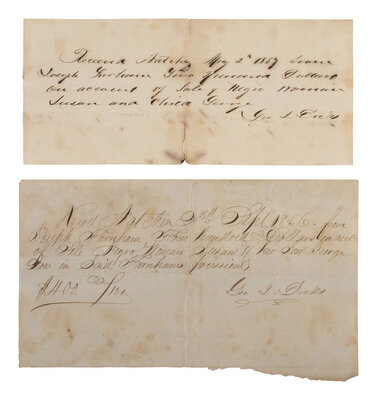 Received Natchez May 2d 1857 from
Joseph Farnham Two thousand Dollars
on account of Sale of Negro woman
Susan and Child George
Geo J Dicks
2nd Sept 1856 from
Joseph Farnham Four Hundred Dollars on acct
of Sale Negro Woman Susan & her Son George
now in Said Farnhams possession
$400 00/100
Geo J Dicks